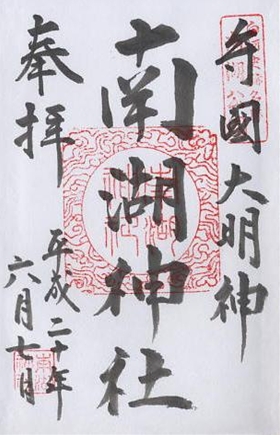 守國大明神
南湖神社
奉拝
平成二十年
六月七日